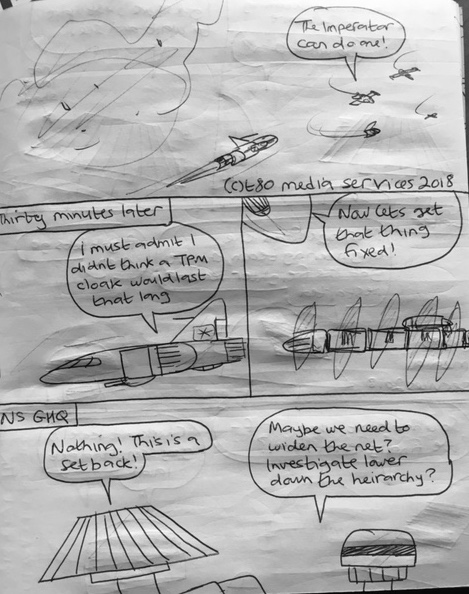 The Imperator
can do one!
(C)t80 media services 2018
Thirty minutes later
i must admit I
didnt think a TPM
cloak would last
that long
Now lets get
that thing
fixed!
NS GHQ
Nothing! This is a
set back!
Maybe we need to
widen the net?
Investigate lower
down the heirarchy?